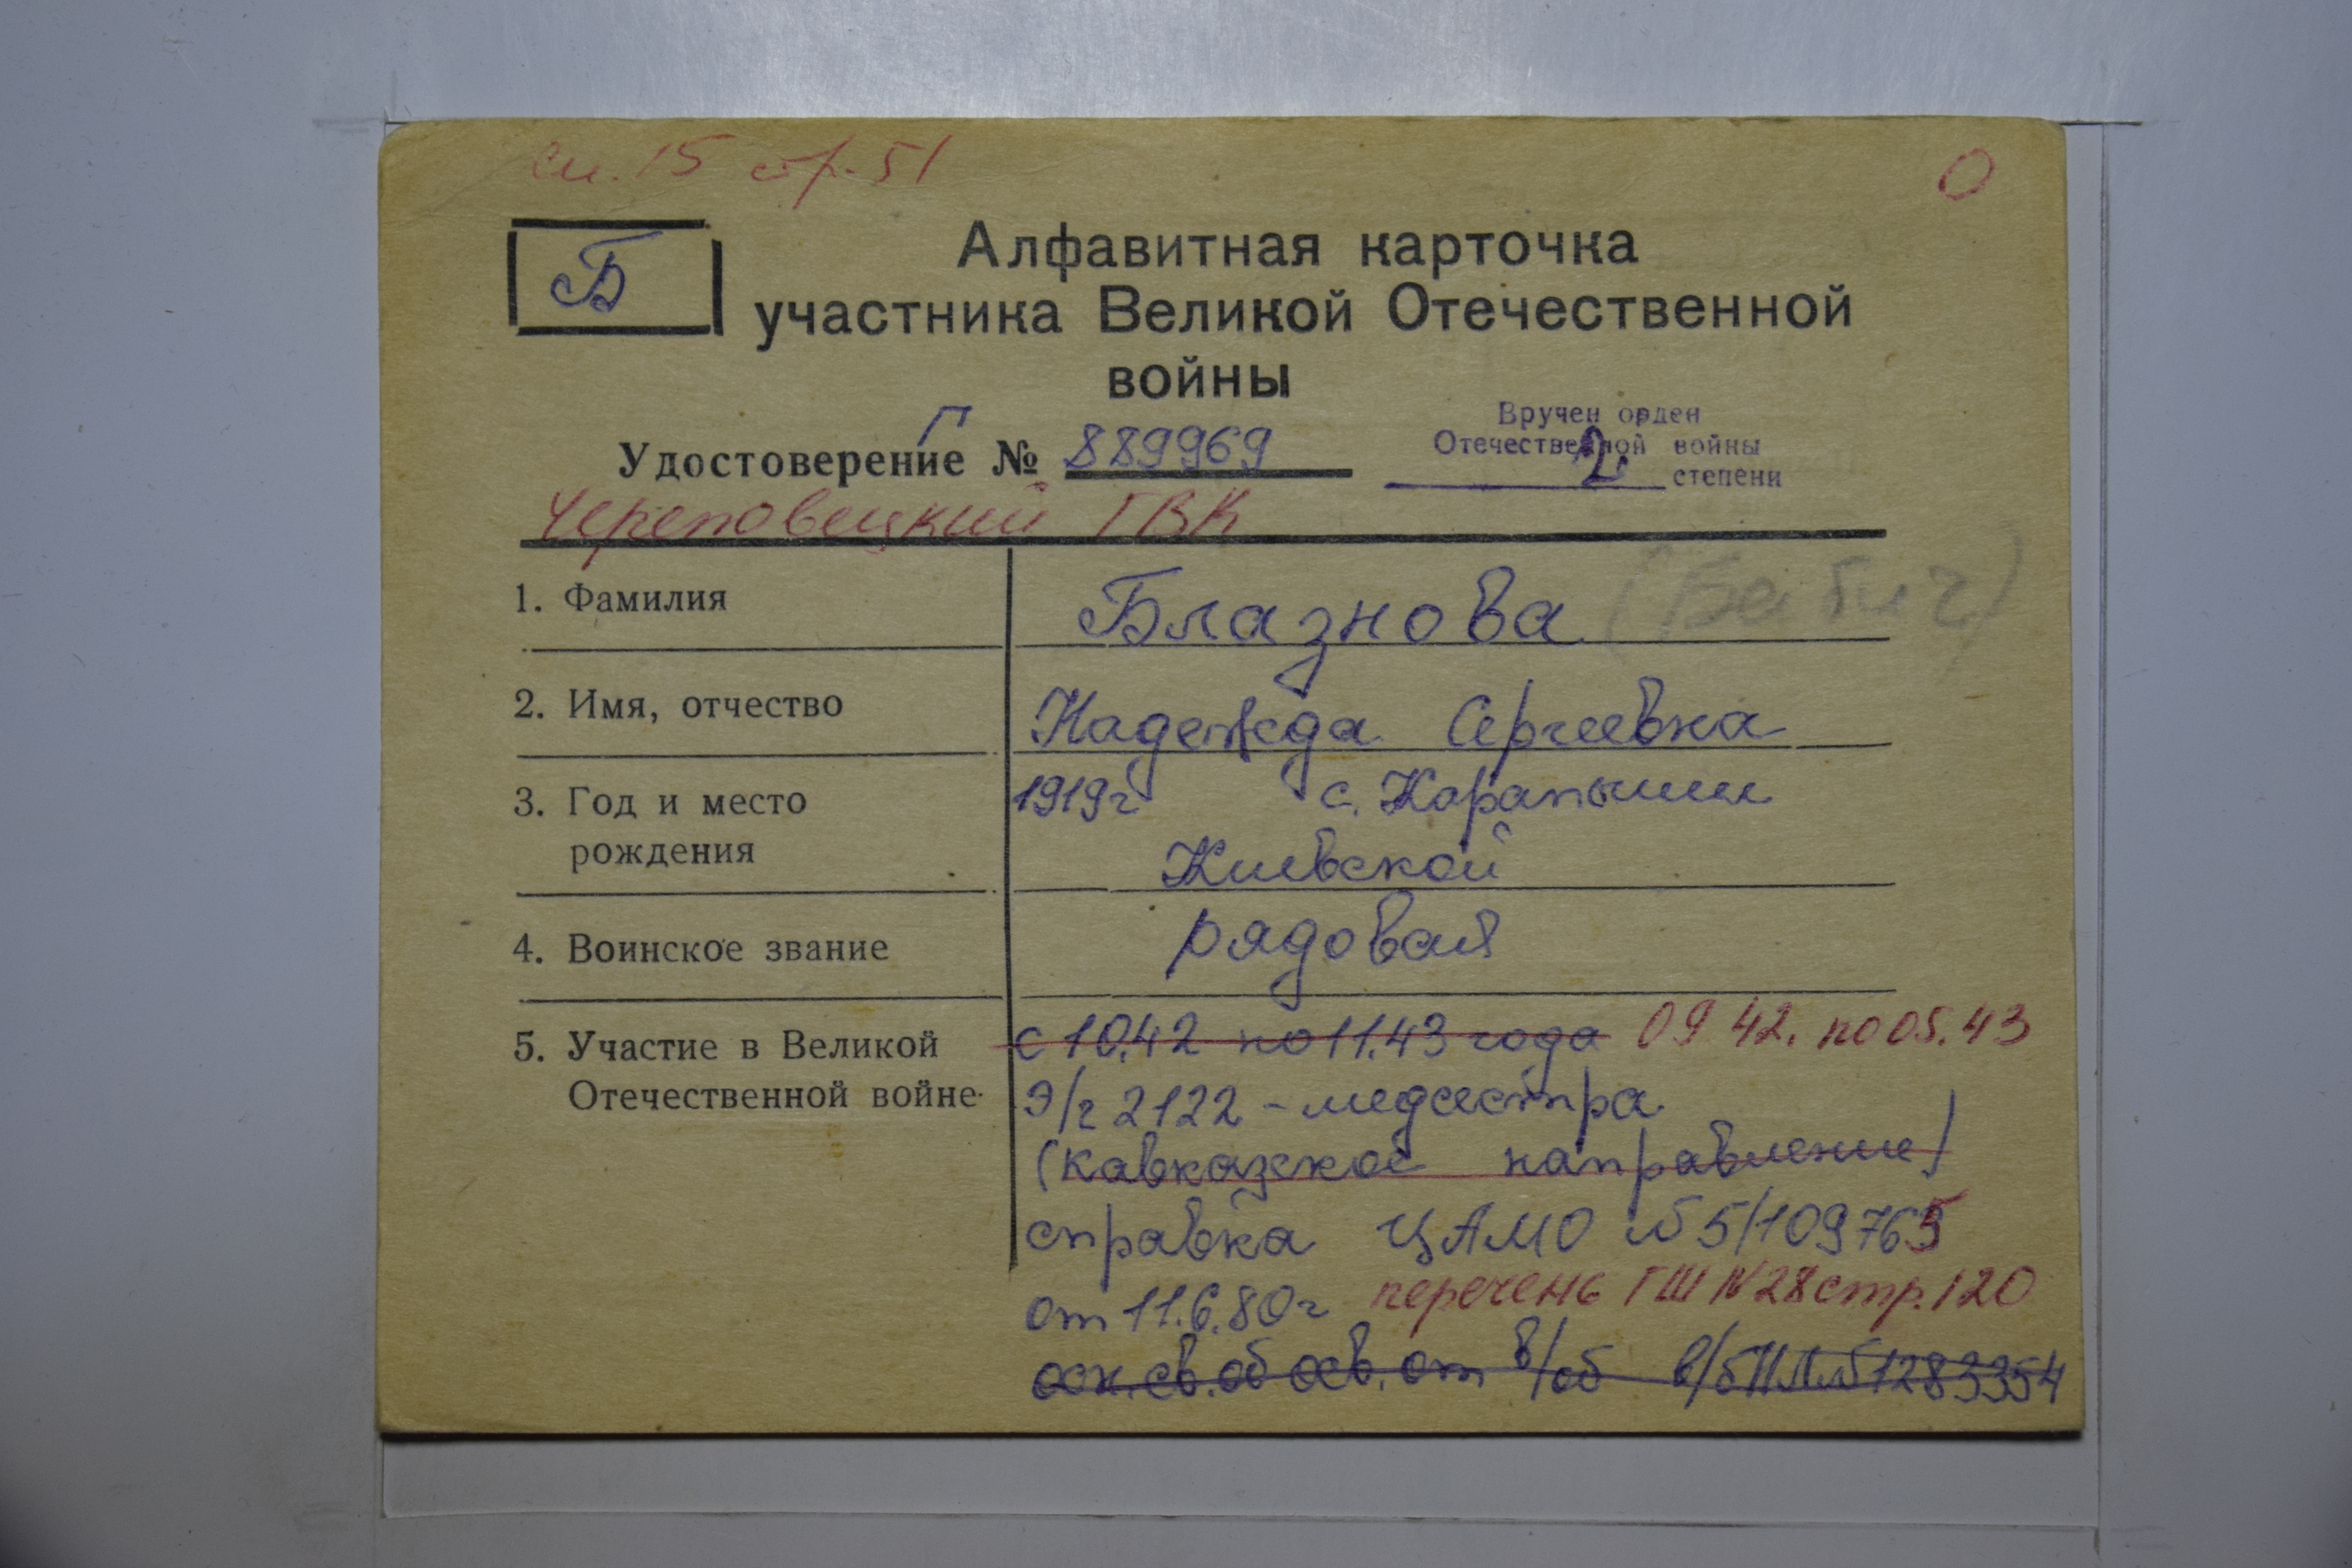 сп. 15 стр. 51
О
Б
Алфавитная карточка
участника Великой Отечественной
войны
Г
Удостоверение № 889969
Вручен орден
Отечественной войны
2 степени
Череповецкий ГВК
1. Фамилия Блазнова (Бабич)
2. Имя, отчество Надежда Сергеевна
3. Год и место 1919г с. Карапыши
рождения Киевской
4. Воинское звание рядовая
5. Участие в Великой с 10.42 по 11.43 года 09 42. по 05.43
Отечественной войне Э/г 2122 - медсестра
(Кавказское направление)
справка ЦАМО №5/109765
от 11.6.80г перечень ГШ №28 стр. 120
осн. св. об осв. от в/об в/б НЛ №1283354